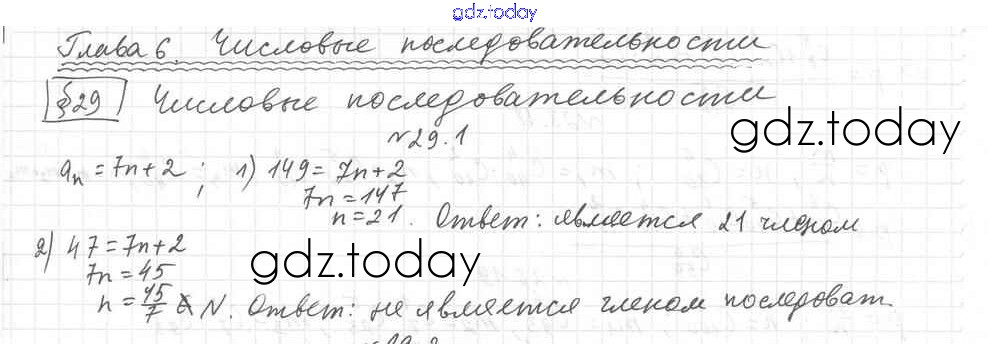 gdz.today
Глава 6. Числовые последовательности
§29 Числовые последовательности
№29.1
gdz.today
aₙ = 7n + 2; 1) 149 = 7n + 2
7n = 147
n = 21. Ответ: является 21 членом
2) 47 = 7n + 2
7n = 45
gdz.today
n = 45/7 ∉ N. Ответ: не является членом последоват.